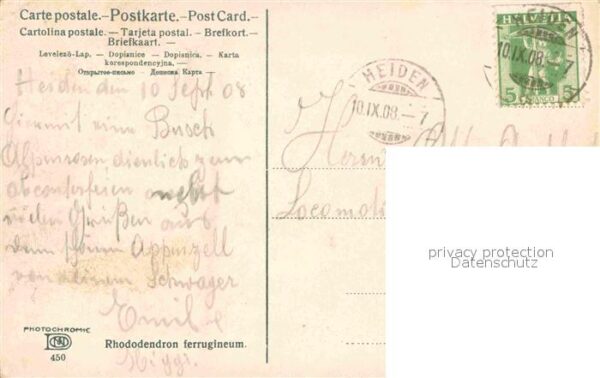 Carte postale.-Postkarte.-Post Card.-
Cartolina postale. - Tarjeta postal. - Brefkort. -
Briefkaart. -
Levelező-Lap. - Dopisnice - Dopisnica. - Karta
korespondencyjna. -
Открытое-письмо - Дописна Карта -
Heiden den 10 Sept 08
Hiermit einen Busch
Alpenrosen dienlich zum
abconterfeien nebst
vielen Grüßen aus
dem schönen Appenzell
von deinem Schwager
Emil
PHOTOCHROMIE
450
Rhododendron ferrugineum.
HELVETIA
5 FRANCO 5
HEIDEN
10.IX.08.-7
HEIDEN
10.IX.08.-7
Herrn
Locomoti
privacy protection
Datenschutz